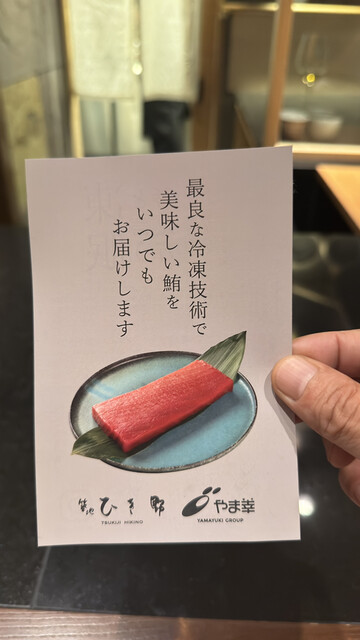 最良な冷凍技術で
美味しい鮪を
いつでも
お届けします
築地 ひき野
TSUKIJI HIKINO
やま幸
YAMAYUKI GROUP